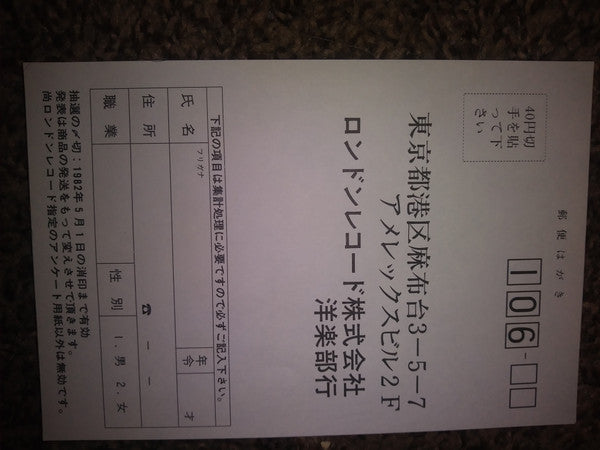 郵便はがき
106-
40円切
手を貼
って下
さい
東京都港区麻布台3-5-7
アメレックスビル2F
ロンドンレコード株式会社
洋楽部行
下記の項目は集計処理に必要ですので必ずご記入下さい。
フリガナ
氏名
年令
才
住所
☎ － －
職業
性別
1.男 2.女
抽選の〆切:1982年5月1日の消印まで有効
発表は商品の発送をもって変えさせて頂きます。
尚ロンドンレコード指定のアンケート用紙以外は無効です。